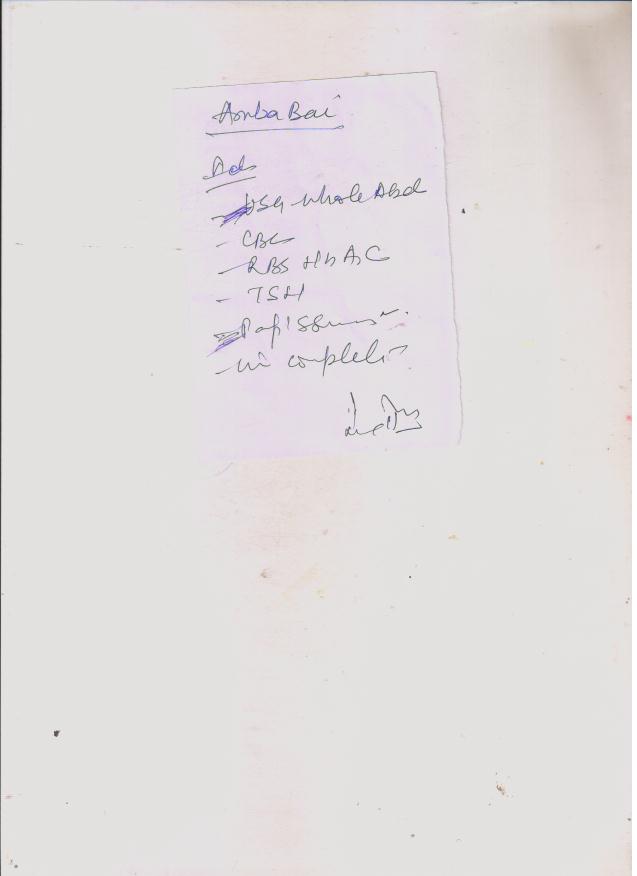 Amba Bai
Adv
- USG whole Abd
- CBC
- RBS HbA1C
- TSH
- Pap'
- complete